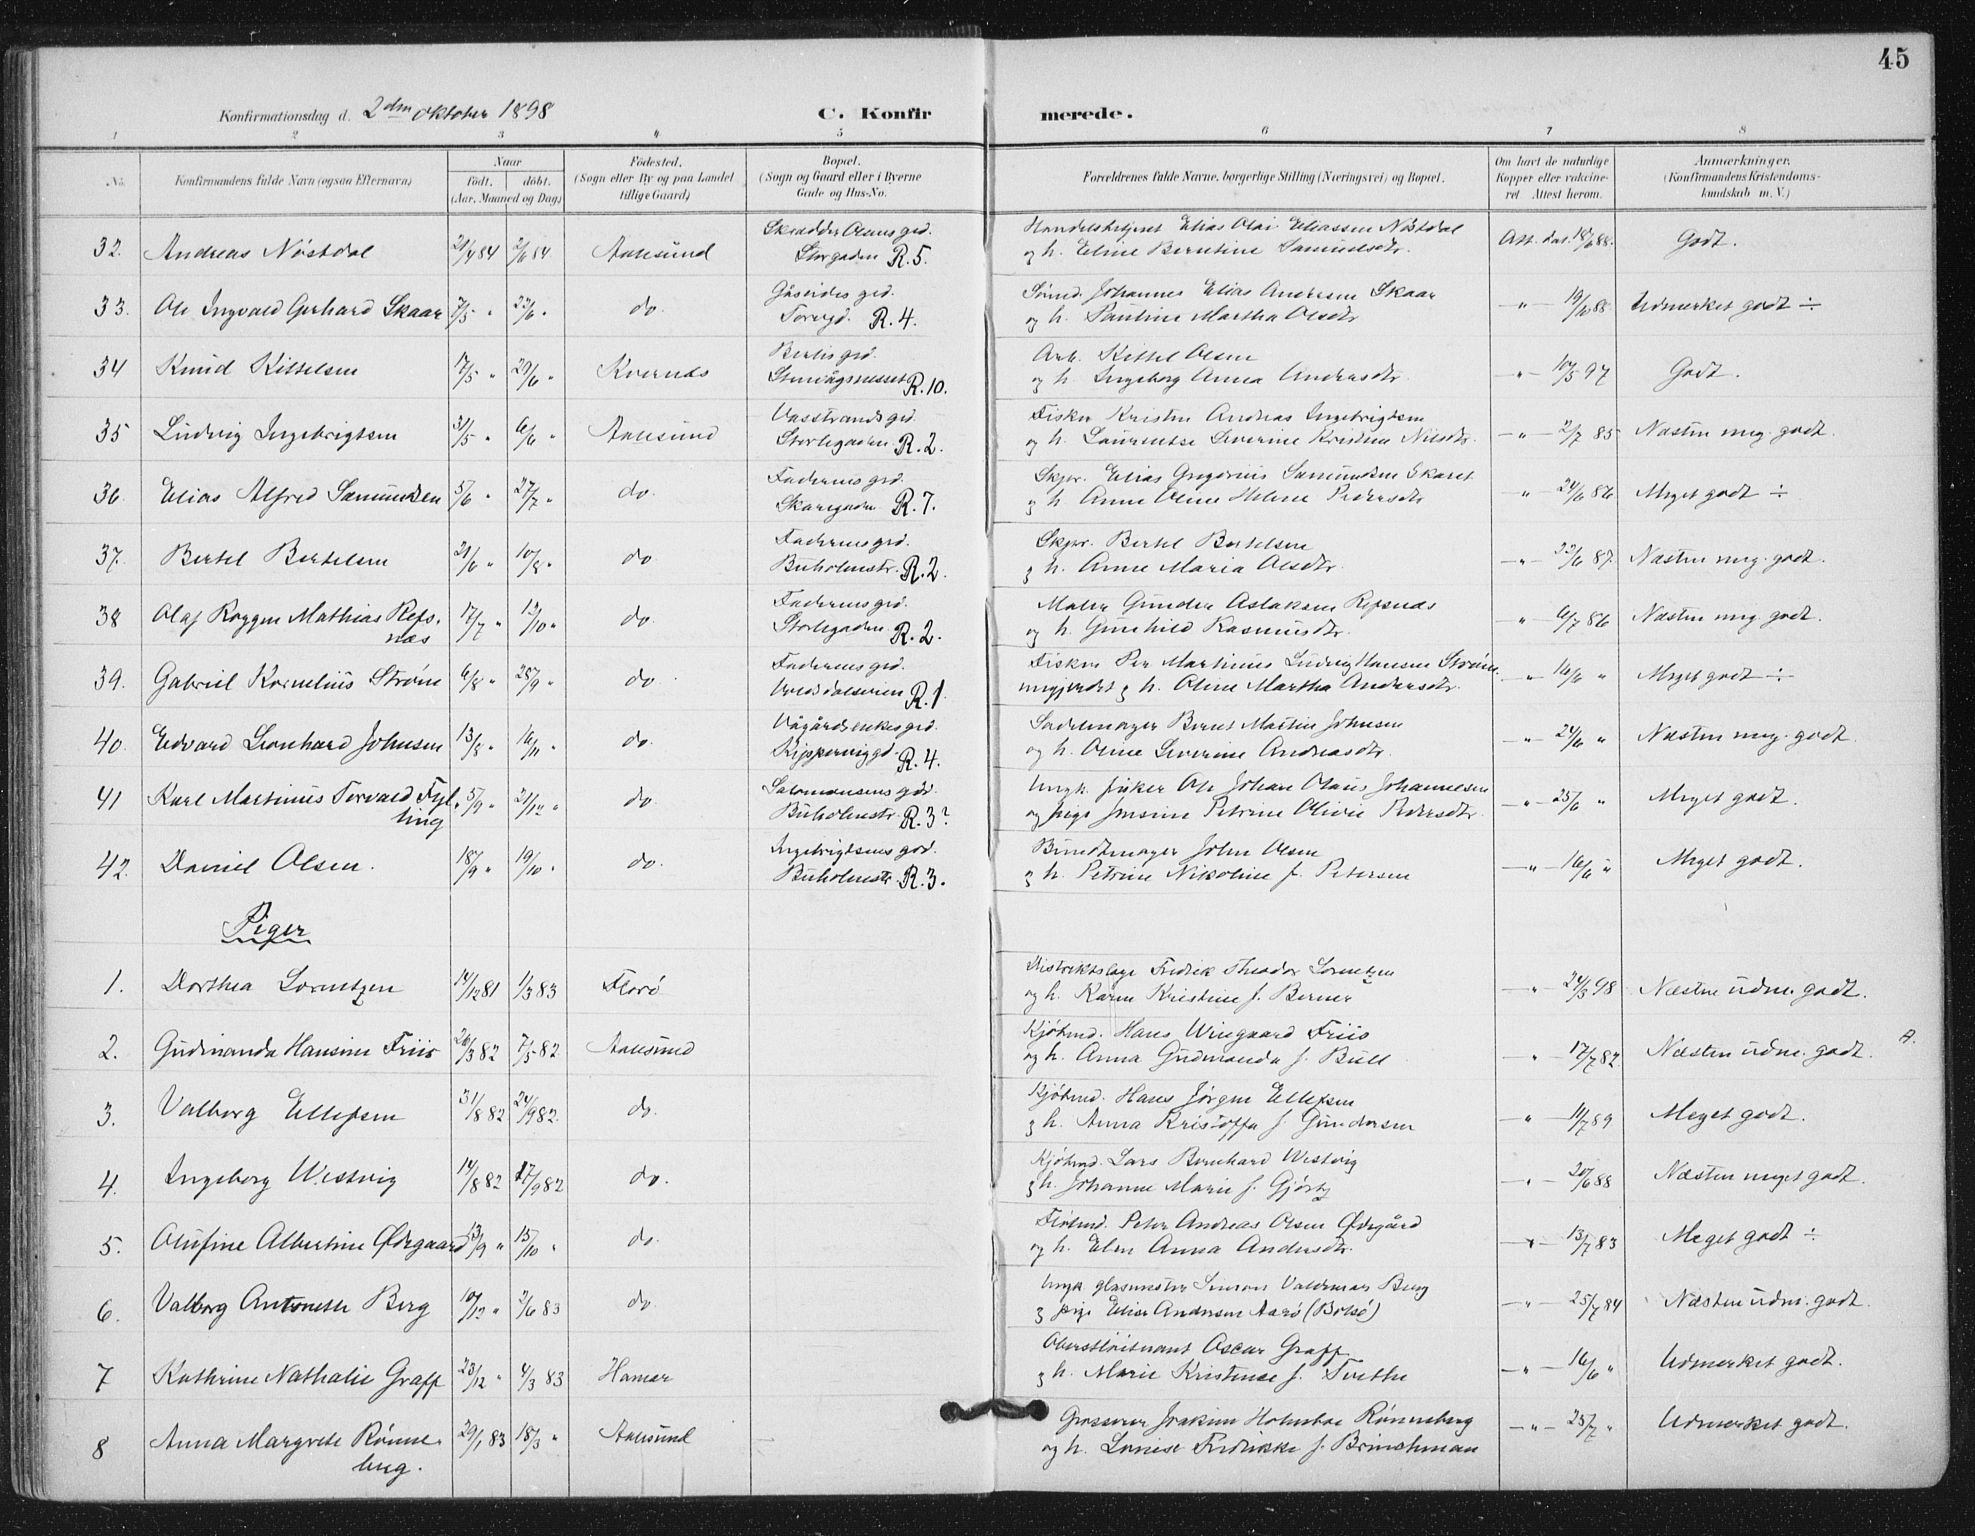 45
Konfirmationsdag d. 2den Oktober 1898 C. Konfirmerede.
1 2 3 4 5 6 7 8
No. Konfirmandens fulde Navn (ogsaa Efternavn) Naar födt. döbt. (Aar, Maaned og Dag) Födested. (Sogn eller By og paa Landet tillige Gaard) Bopæl. (Sogn og Gaard eller i Byerne Gade og Hus-No. Forældrenes fulde Navne, borgerlige Stilling (Næringsvei) og Bopæl. Om havt de naturlige Kopper eller vakcineret. Attest herom. Anmærkninger. (Konfirmandens Kristendomskundskab m. V.)
32. Andreas Nöstdal 21/4 84 2/6 84 Aalesund Skrædder Olausgrd. Storgaden R. 5. Handelsbetjent Elias Olai Eliassen Nöstdal og h. Eline Berntine Samuelsdtr. Att. dat. 18/6 88. Godt.
33. Ole Ingvald Gerhard Skaar 7/5 " 23/6 " do. Gåseides grd. Torvgd. R. 4. Sömd. Johannes Elias Andersen Skaar og h. Pauline Martha Olsdtr. " 19/6 88 Udmerket godt ÷
34 Knud Kittelsen 17/5 " 29/6 " Kvernæs R. 10. Arb. Kittel Olsen og h. Ingeborg Anna Andersdtr. " 10/5 97 Godt.
35 Ludvig Ingebrigtsen 31/5 " 6/6 " Aalesund Vasstrands grd. Storlegaden R. 2. Fisker Kristen Andreas Ingebrigtsen og h. Laurentse Severine Kristine Nilsdtr. " 2/7 85 Næsten meg. godt.
36. Elias Alfred Samundsen 5/6 " 27/7 " do. Faderens grd. Skaregaden R. 7. Skpr. Elias Gregorius Samundsen Skaret g h. Anne Oline Helene Pedersdtr " 24/6 86 Meget godt ÷
37. Bertel Bertelsen 21/6 " 10/8 " do Faderens grd. Buholmstr. R. 2. Skpr. Bertel Bertelsen g h. Anne Maria Olsdtr. " 22/6 87. Næsten meg. godt.
38 Olaf Roggen Mathias Refsnæs 17/7 " 12/10 " do. Faderens grd. Storlegaden R. 2. Maler Gunder Aslaksen Refsnæs og h. Gunhild Rasmusdtr. " 6/7 86 Næsten meg. godt.
39. Gabriel Kornelius Ström 6/8 " 28/9 " do. Faderens grd. R. 1 Fisker Per Martinus Ludvig Hansen Strömmegjerdet g h. Oline Martha Andersdtr. " 16/6 " Meget godt ÷
40. Edvard Leonhard Johnsen 13/8 " 16/11 " do. Vågårds enkes grd. R. 4. Sadelmager Bernt Martin Johnsen og h. Oline Severine Andreasdtr. " 24/6 " Næsten meg. godt.
41 Karl Martinus Torvald Fylling 5/9 " 21/12 " do. Salomonsens grd. Buholmstr. R. 3? Ungk. fisker Ole Johan Olaus Johannesen og pige Jensine Petrine Olivie Pedersdtr. " 25/6 " Meget godt.
42. Daniel Olsen. 18/9 " 19/10 " do. Ingebrigtsens grd. Buholmstr R. 3. Bundtmager John Olsen g h. Petrine Nikoline f. Petersen " 16/6 " Meget godt.
Piger
1. Dorthea Lorentzen 14/12 81 1/3 83 Florö Distriktslæge Fredrik Theodor Lorentzen og h. Karen Kristine f. Berner " 24/3 98 Næsten udm. godt.
2. Gudmanda Hansine Friis 26/3 82 7/5 82 Aalesund Kjöbmd. Hans Wingaard Friis og h. Anna Gudmanda f. Bull " 17/7 82 Næsten udm. godt.
3. Valborg Ellefsen 31/8 82 24/9 82. do. Kjöbmd. Hans Jörgen Ellefsen g h. Anna Kristoffa f. Gundersen " 11/7 89 Meget godt.
4. Ingeborg Westvig 14/8 82 17/9 82 do. Kjöbmd. Lars Bernhard Westvig g h. Johanne Marie f. Gjörtz " 20/6 88 Næsten meget godt.
5. Olufine Albertine Ødegaard 13/9 " 15/10 " do. Peter Andreas Olsen Ødegård og h. Elen Anna Andersdtr. " 13/7 83 Meget godt ÷
6. Valborg Antonette Berg 10/12 " 2/6 83 do. Ungk. glasmester Simon Valdemar Berg g pige Elise Andersen Aarö (Bolsö) " 25/7 84 Næsten udm. godt.
7 Kathrine Nathalie Graff 23/12 " 4/3 83 Hamar Oberstlöitnant Oscar Graff g h. Marie Kristense f. Tvethe " 16/6 " Udmerket godt.
8 Anna Margrete Rönneberg. 29/1 83 18/3 " Aalesund Grosserer Joakim Holmboe Rönneberg og h. Louise Fredrikke f. Brinchmann " 25/7 " Udmerket godt.